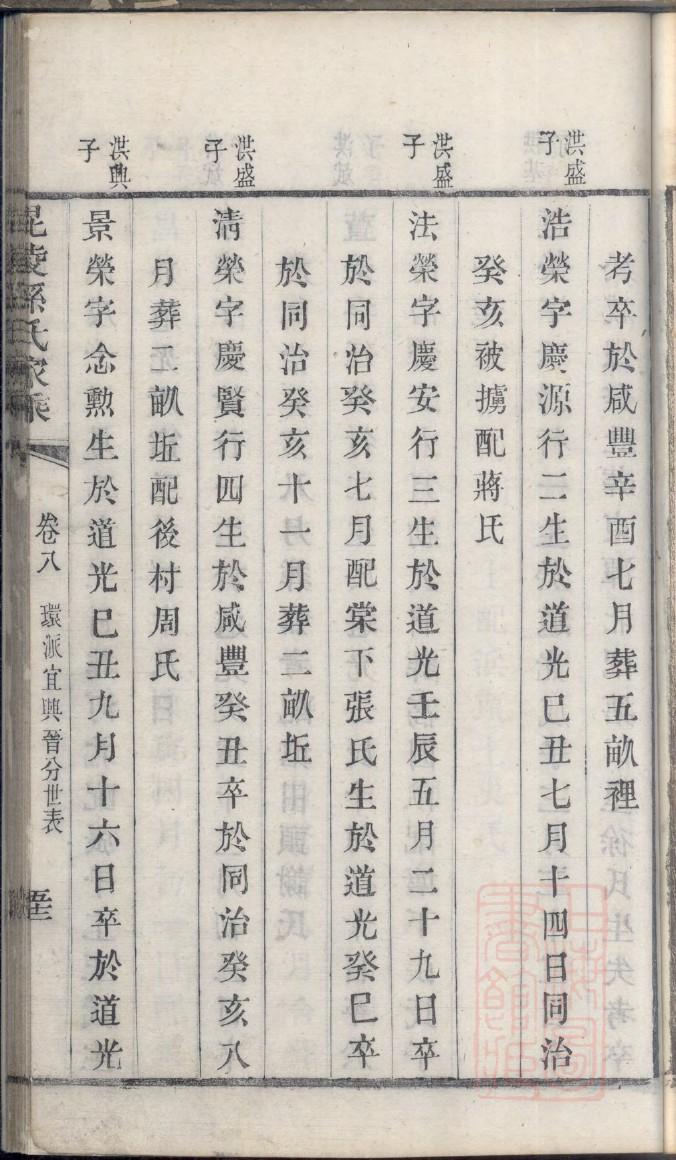 考卒於咸豐辛酉七月葬五畝裡
洪盛子
浩榮字慶源行二生於道光巳丑七月十四日同治
癸亥被擄配蔣氏
洪盛子
法榮字慶安行三生於道光壬辰五月二十九日卒
於同治癸亥七月配棠下張氏生於道光癸巳卒
於同治癸亥十一月葬二畝坵
洪盛子
清榮字慶賢行四生於咸豐癸丑卒於同治癸亥八
月葬二畝坵配後村周氏
洪興子
景榮字念勳生於道光巳丑九月十六日卒於道光
毘陵孫氏家乘
卷八
環派宜興晉分世表